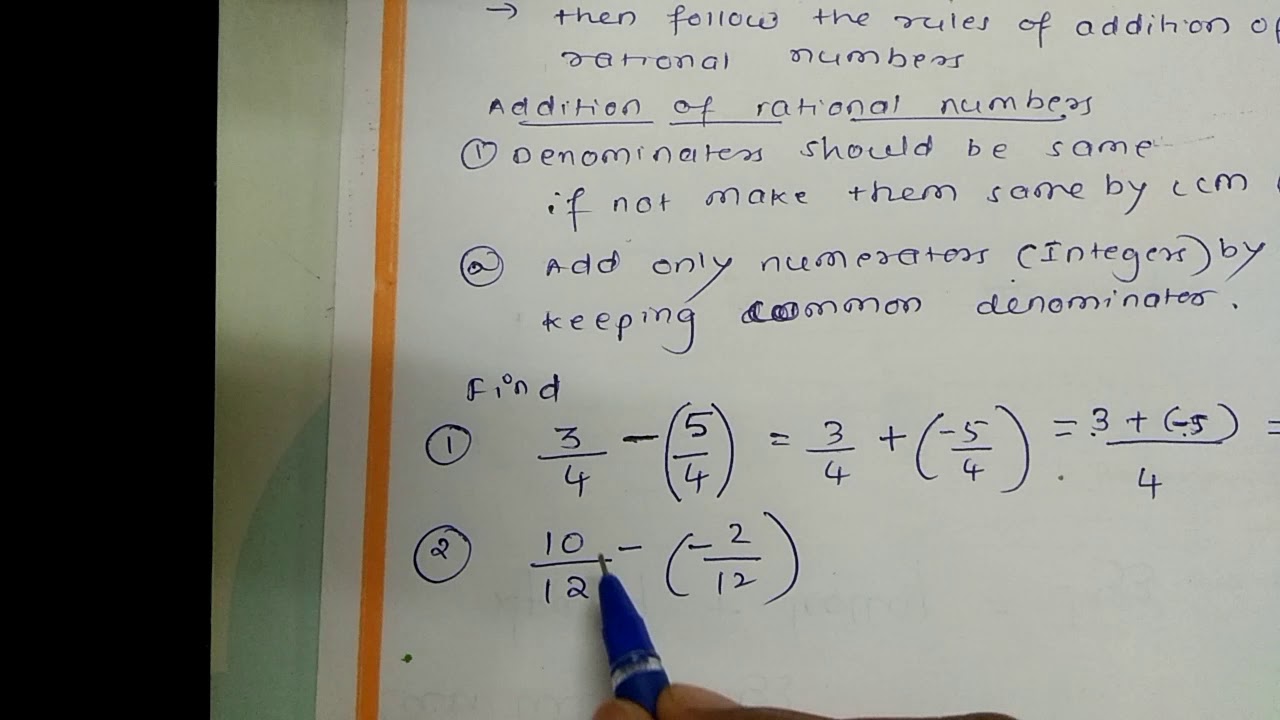 → then follow the rules of addition of
rational numbers
Addition of rational numbers
① Denominaters should be same
if not make them same by LCM
② Add only numerators (Integers) by
keeping common denominator.
Find
① 3/4 - (5/4) = 3/4 + (-5/4) = 3 + (-5)/4 =
② 10/12 - (-2/12)